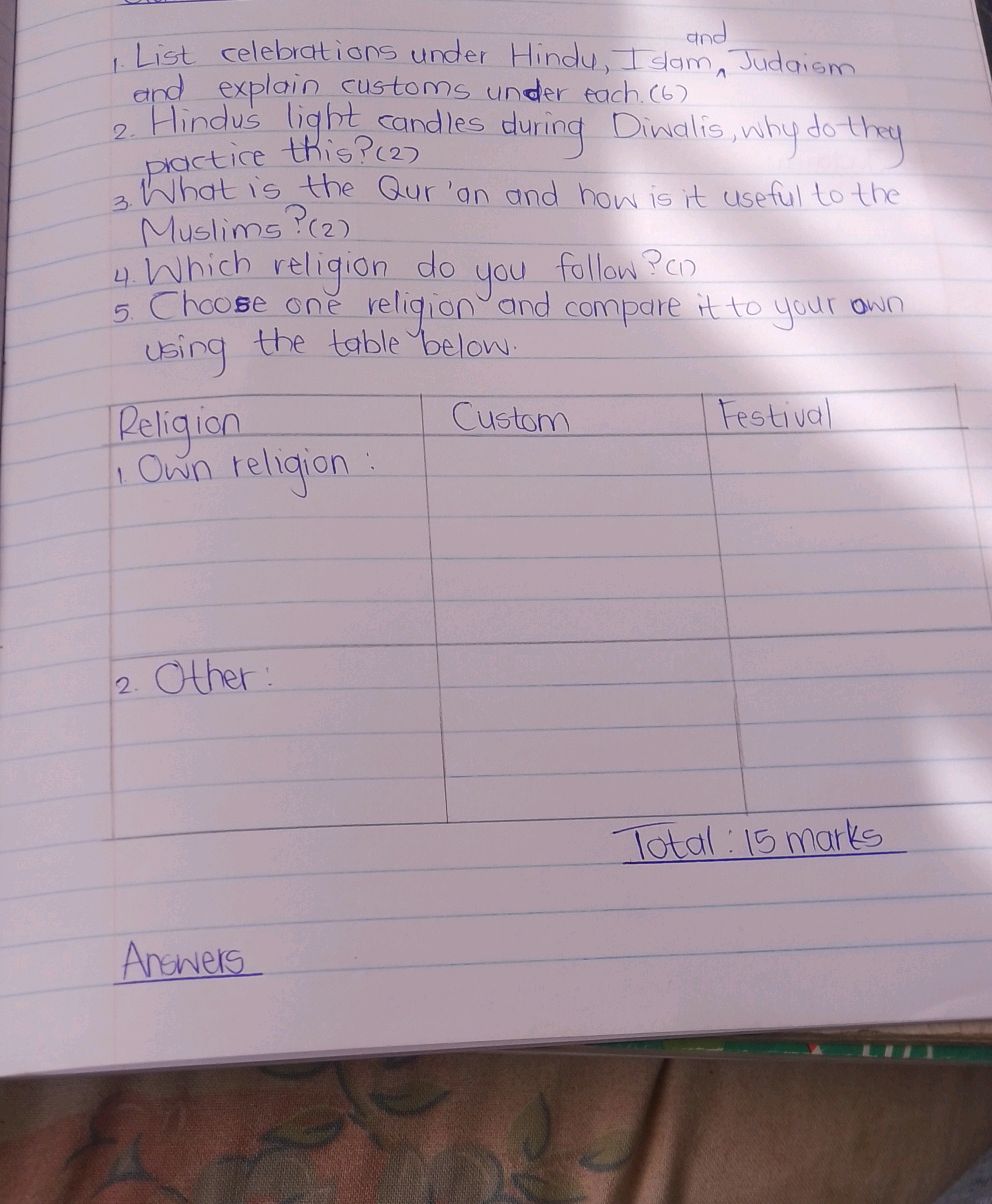 and
1. List celebrations under Hindu, Islam, ^ Judaism
and explain customs under each.(6)
2. Hindus light candles during Diwalis, why do they
practice this?(2)
3. What is the Qur'an and how is it useful to the
Muslims?(2)
4. Which religion do you follow?(1)
5. Choose one religion and compare it to your own
using the table below.
Religion Custom Festival
1. Own religion :
2. Other :
Total : 15 marks
Answers